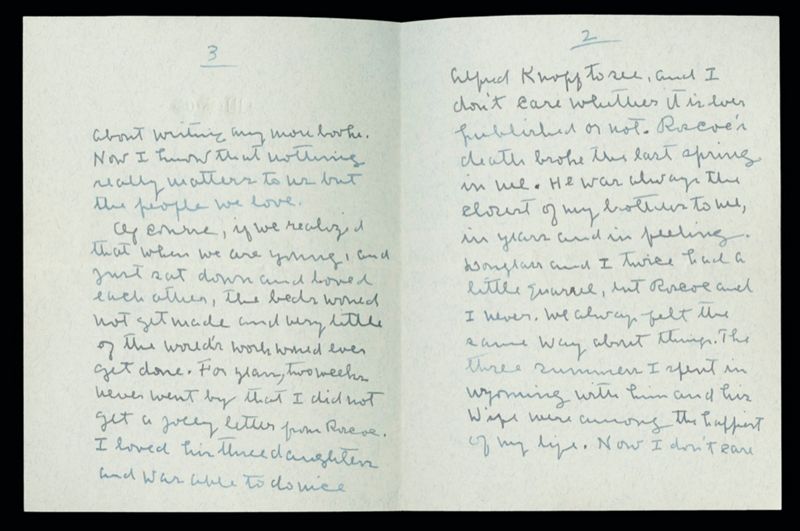 2
Alfred Knopf to see, and I
don't care whether it is ever
published or not. Roscoe's
death broke the last spring
in me. He was always the
closest of my brothers to me,
in years and in feeling.
Douglass and I twice had a
little quarrel, but Roscoe and
I never. We always felt the
same way about things. The
three summers I spent in
Wyoming with him and his
Wife were among the happiest
of my life. Now I don't care
3
about writing any more books.
Now I know that nothing
really matters to us but
the people we love.
Of course, if we realized
that when we are young, and
just sat down and loved
each other, the beds would
not get made and very little
of the world's work would ever
get done. For years, two weeks
never went by that I did not
get a jolly letter from Roscoe.
I loved his three daughters
and was able to do nice